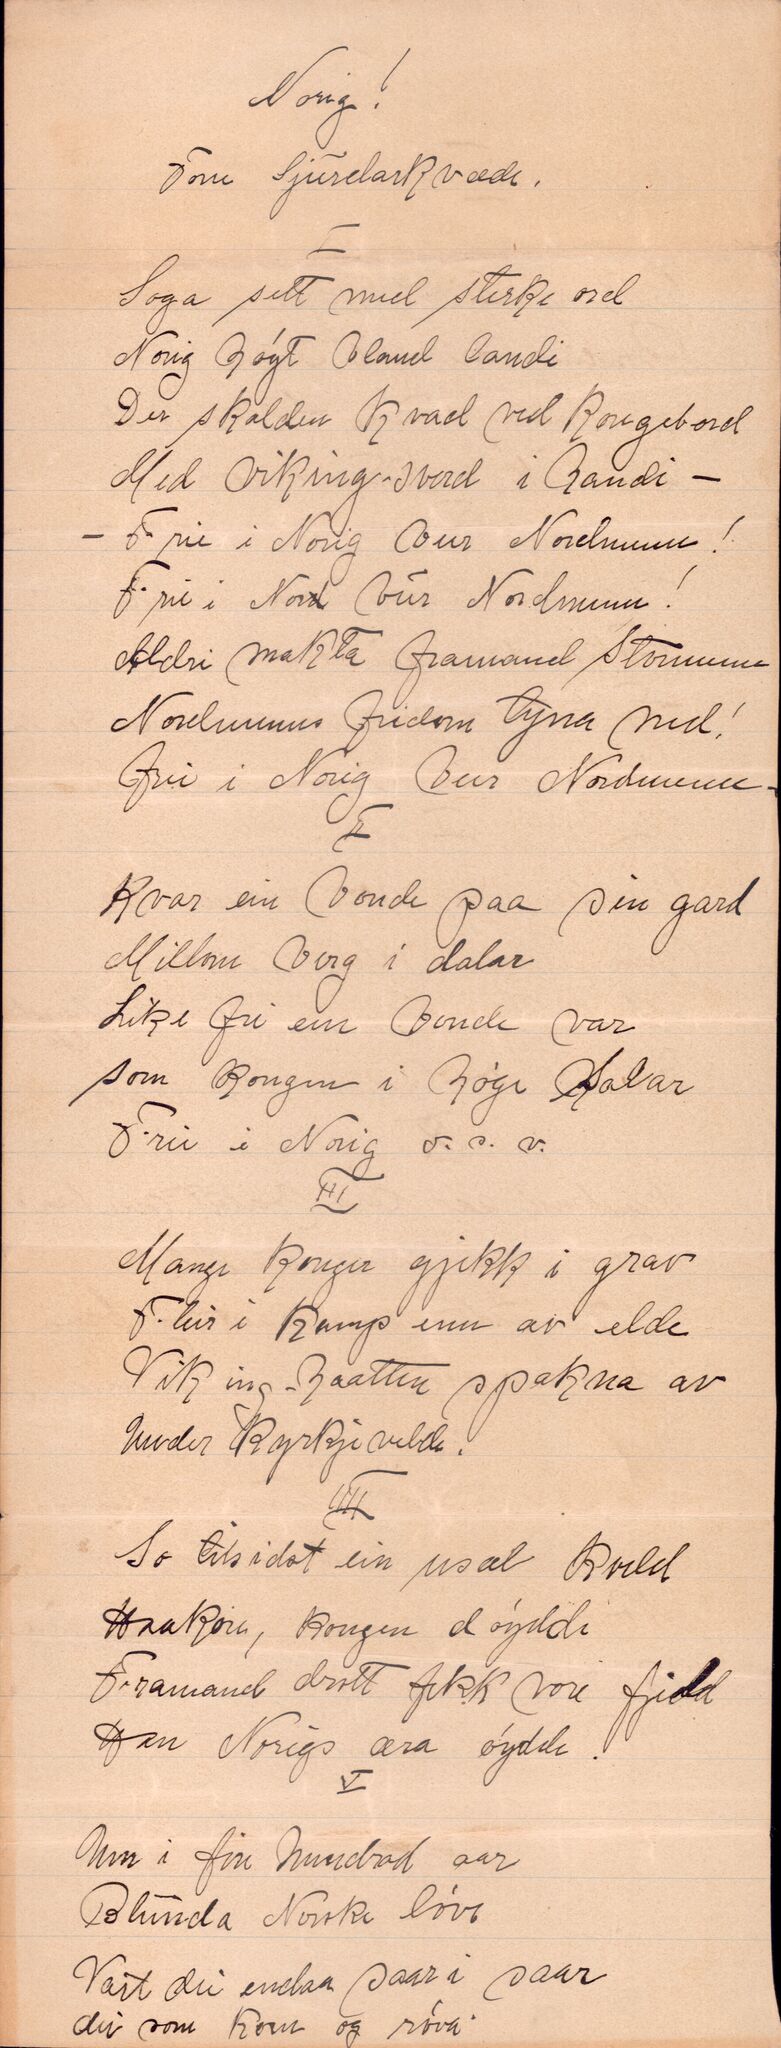 Norig!
Tone Sjurdarkvæde.
I
Soga sett med sterke ord
Norig høgt bland landi
Der skalden kvad ved kongebord
Med viking-sverd i handi –
– Frie i Norig bur Nordmenn!
Frie i Nord bur Nordmenn!
Aldri makta framand Stormenn
Nordmenns fridom tyna ned!
frie i Norig bur Nordmenn –
II
Kvar ein bonde paa sin gard
Millom berg i dalar
Like fri ein bonde var
som kongen i høge Salar
Frie i Norig o. s. v.
III
Mange konger gjekk i grav
Fleir i kamp enn av elde
Viking-haatten spakna av
Under kyrkjevelde.
IIII
So tilsidst ein usæl kveld
Haakon, kongen døydde
Framand drott fekk vore fjeld
Han Norigs æra øydde.
V
Um i fire hundrad aar
Blunda Norske løve
Vart die endaa saar i saar
die som kom og røva